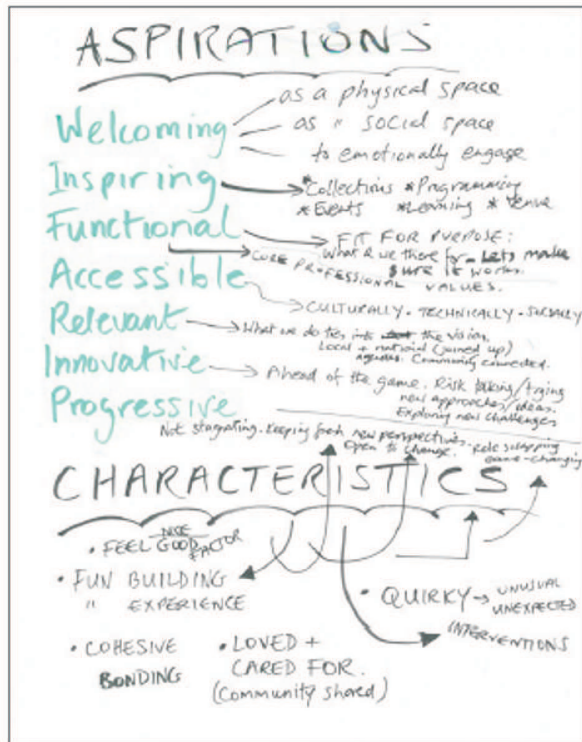 ASPIRATIONS
Welcoming
as a physical space
as " social space
to emotionally engage
Inspiring
*Collections *Programming
*Events *Learning *Venue
Functional
FIT FOR PURPOSE:
What R we there for - Lets make
sure it works.
CORE PROFESSIONAL VALUES.
Accessible
CULTURALLY. TECHNICALLY. SOCIALLY
Relevant
What we do ties into the vision.
Local + national (joined up)
agendas. Community connected.
Innovative
Ahead of the game. Risk taking/trying
new approaches/ideas.
Exploring new challenges
Progressive
Not stagnating. Keeping fresh new perspectives.
Open to change. Role swapping
game-changing
CHARACTERISTICS
• FEEL GOOD FACTOR
NICE
• FUN BUILDING
" EXPERIENCE
• QUIRKY → UNUSUAL
UNEXPECTED
INTERVENTIONS
• COHESIVE
BONDING
• LOVED +
CARED FOR.
(Community shared)